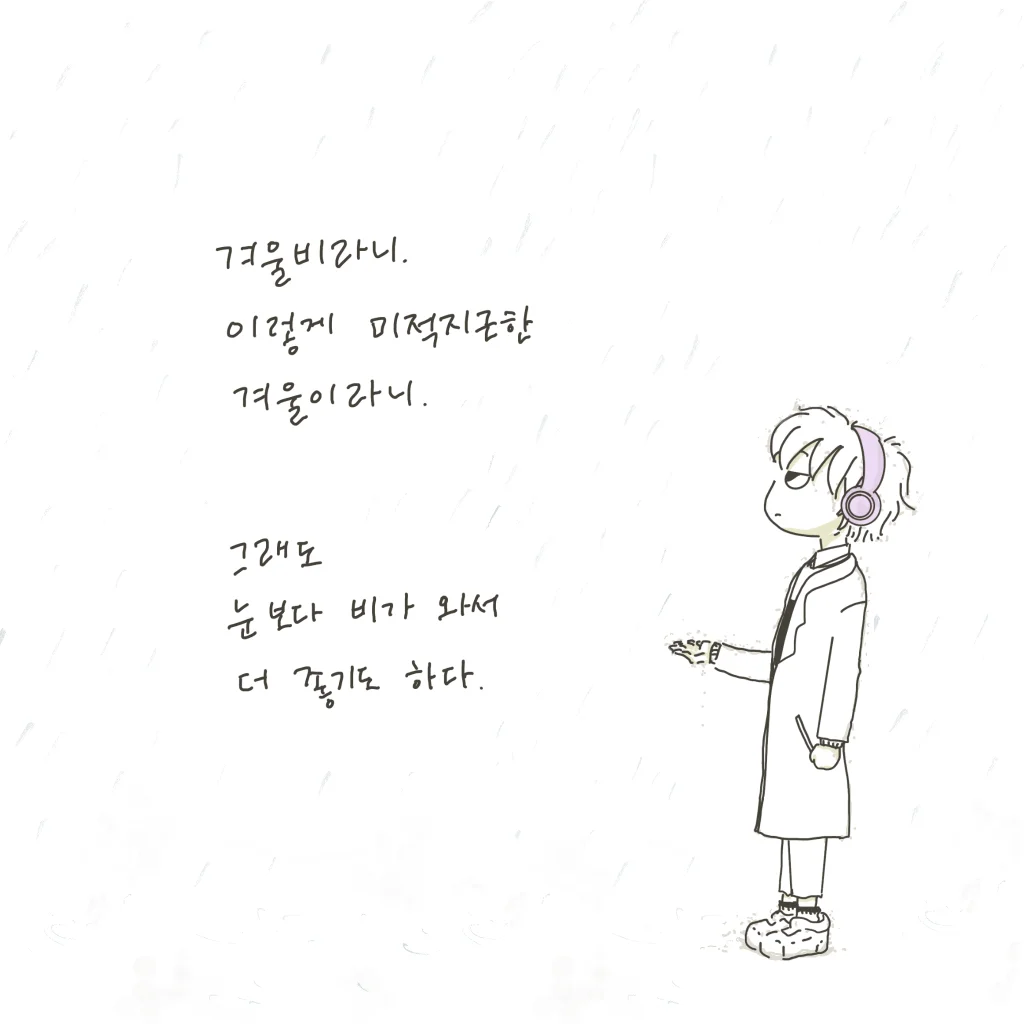 겨울비라니.
이렇게 미적지근한
겨울이라니.
그래도
눈보다 비가 와서
더 좋기도 하다.